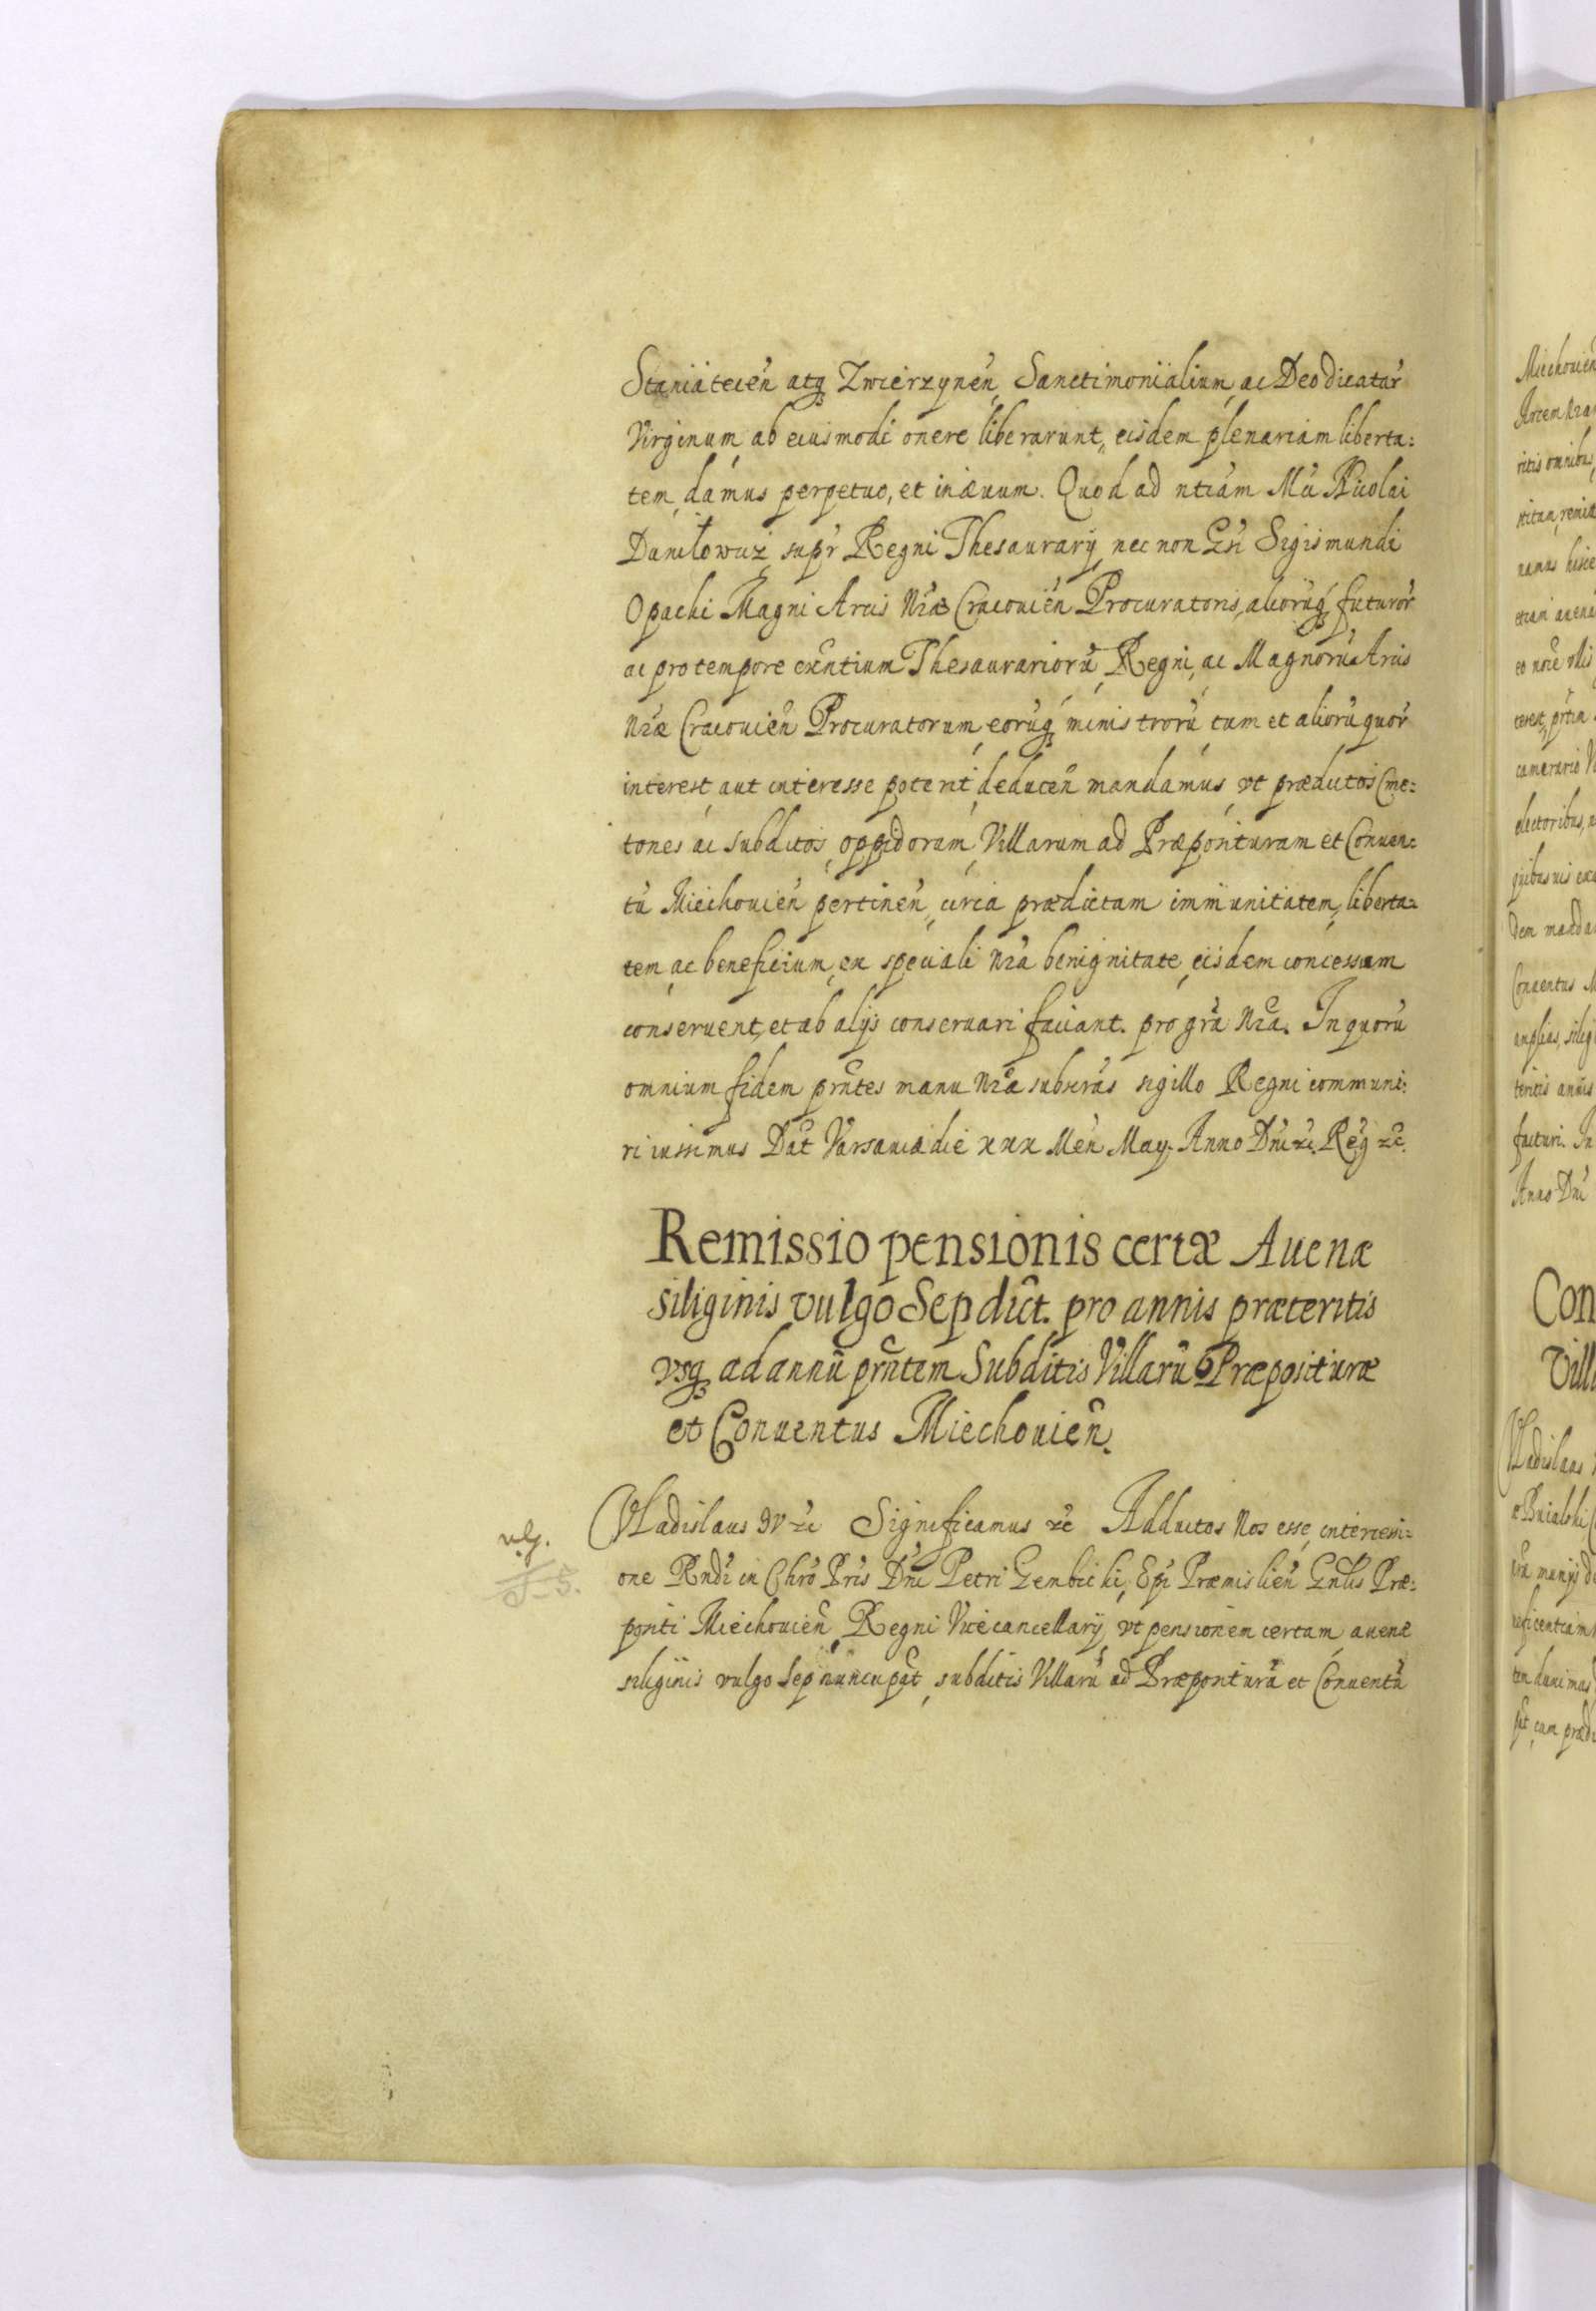 Staniątecen̄ atq̨ Zwierzynen̄, Sanctimonialium, ac Deo dicatar̄
Virginum, ab eiusmodi onere liberarunt, eisdem plenariam liberta:
tem, damus perpetuo, et in æuum. Quod ad ntiam Mci Nicolai
Daniłowicz, supr̄ Regni Thesaurarÿ, nec non Gsi Sigismundi
Opacki Magni Arcis Nræ Cracouien̄ Procuratoris, aliorūq̨ futuror̄
ac pro tempore exn̄tium Thesaurariorū Regni, ac Magnorū Arcis
Nræ Cracouien̄ Procuratorum, eorūq̨ ministrorū tum et aliorū quor̄
interest, aut interesse poterit, deducen̄ mandamus, vt prædictos Cme:
tones ac subditos, oppidorum, Villarum ad Præposituram et Conuen:
tū Miechouien̄ pertinen̄, circa prædictam immunitatem, liberta:
tem, ac beneficium, ex speciali Nrā benignitate, eisdem concessum
conseruent, et ab alijs conseruari faciant. pro grā Nrā. In quorū
omnium fidem prn̄tes manu Nrā subscrās sigillo Regni communi:
ri iussimus Dat̄ Varsauiæ die xxx Men̄ Maÿ. Anno Dni &c. Reḡ &c.
Remissio pensionis certæ Auenæ
siliginis vulgo Sep dict̄. pro annis præteritis
vsq̨ ad annū prn̄tem Subditis Villarū Præpositura
et Conuentus Miechouien̄.
Vladislaus IV &c Significamus &c Adductos Nos esse, intercessi:
one Rndi in Chro Pris Dni Petri Gembicki, Epi Præmislien̄ Gnlis Præ:
positi Miechouien̄, Regni Vicecancellarÿ, vt pensionem certam, auenæ
siliginis vulgo Sep nuncupat̄, subditis Villarū ad Præpositurā et Conuentū